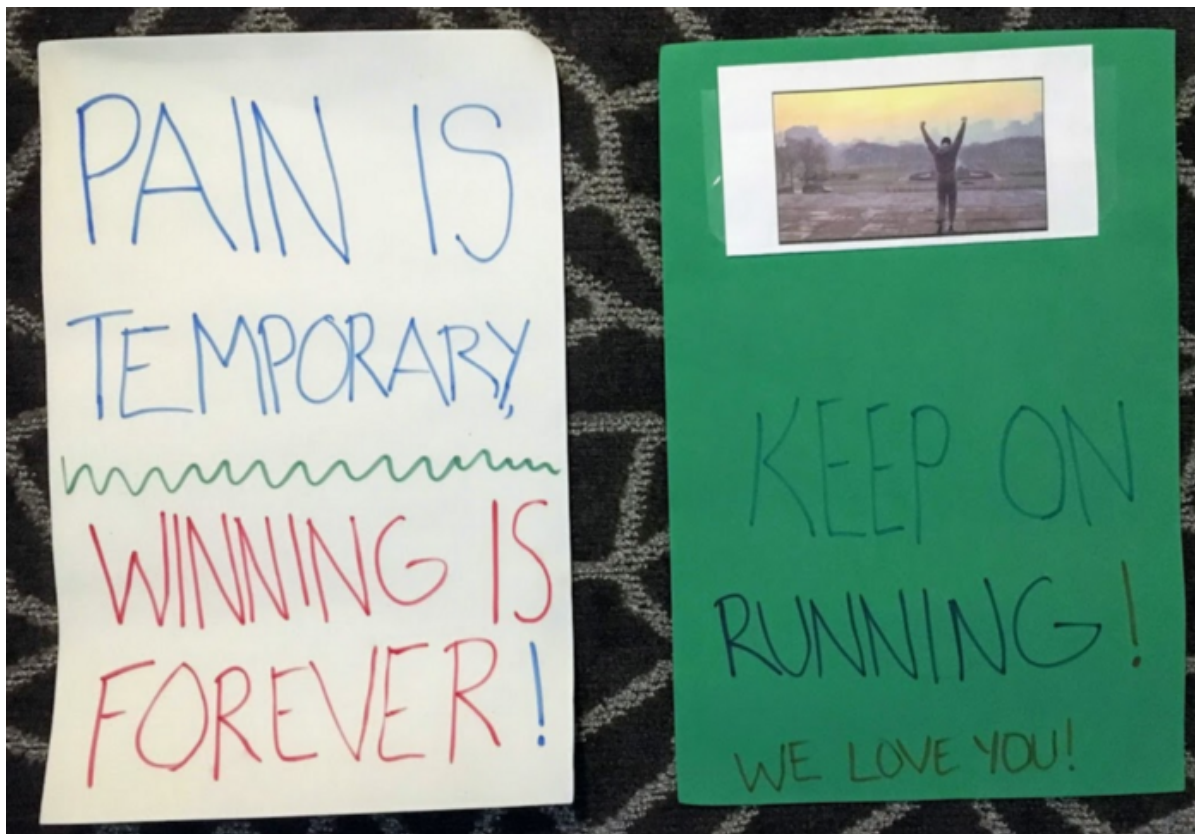 PAIN IS
TEMPORARY,
WINNING IS
FOREVER!
KEEP ON
RUNNING!
WE LOVE YOU!